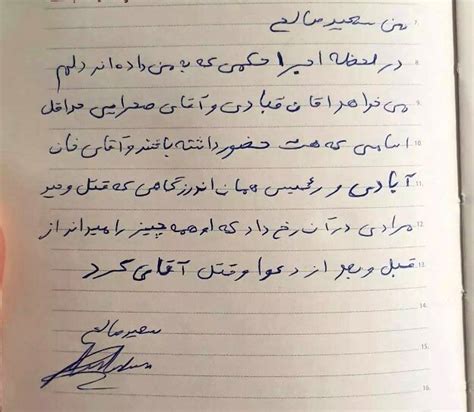 من سعید صالح
در لحظه اجرا حکمی که به من داده اند دلم
می خواهد اقای قبادی و آقای صحرایی حداقل
اسامی که هست حضور داشته باشند و آقای خان
آبادی و رئیس همان اندرزگاهی که قتل وحید
مرادی در آن رخ داد که او همه چیز را میداند از
قبل و بعد از دعوا و قتل آقای کرد
سعید صالح